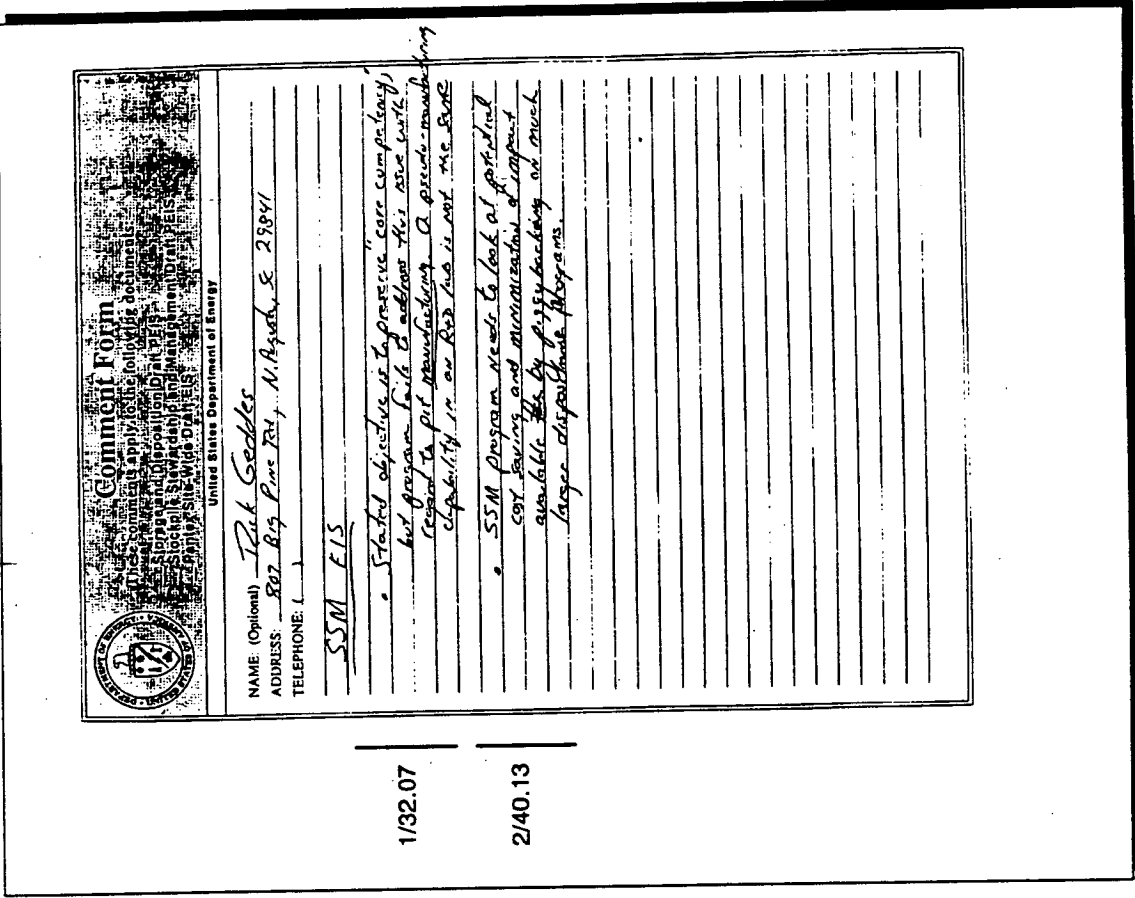 Comment Form
These comments apply to the following document:
Storage and Disposition Draft PEIS
Stockpile Stewardship and Management Draft PEIS
Pantex Site-Wide Draft EIS
United States Department of Energy
NAME: (Optional) Geddes
ADDRESS: 802 Big Pine Rd, N. Augusta, SC 29841
TELEPHONE: ( )
SSM EIS
1/32.07
• Stated objective is to preserve "core competency,"
but program fails to address this issue with
regard to pit manufacturing. A pseudo-manufacturing
capability in an R+D lab is not the same
2/40.13
• SSM program needs to look at potential
cost saving and minimization of impact
available by piggybacking on much
larger disposition programs.